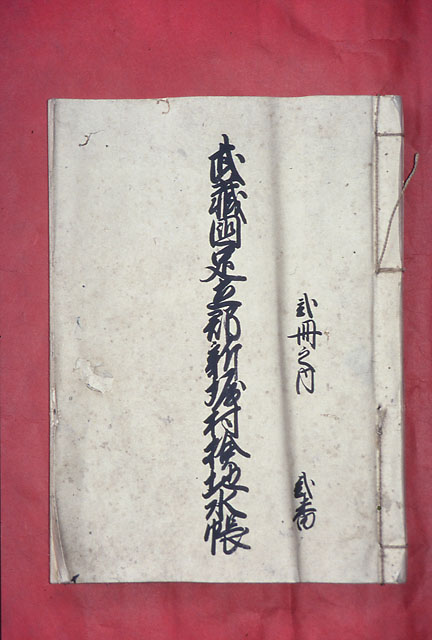 弐冊之内
弐番
武蔵国足立郡新堀村検地水帳